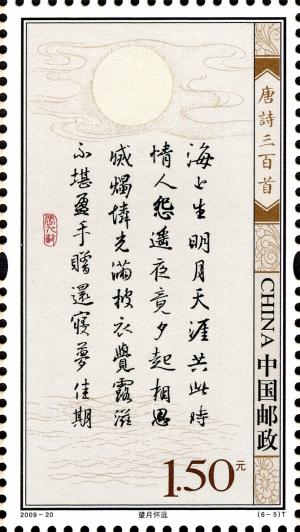 唐詩三百首
海上生明月天涯共此時
情人怨遙夜竟夕起相思
滅燭憐光滿披衣覺露滋
不堪盈手贈還寢夢佳期
CHINA 中国邮政
1.50元
2009-20
望月怀远
(6-5)T